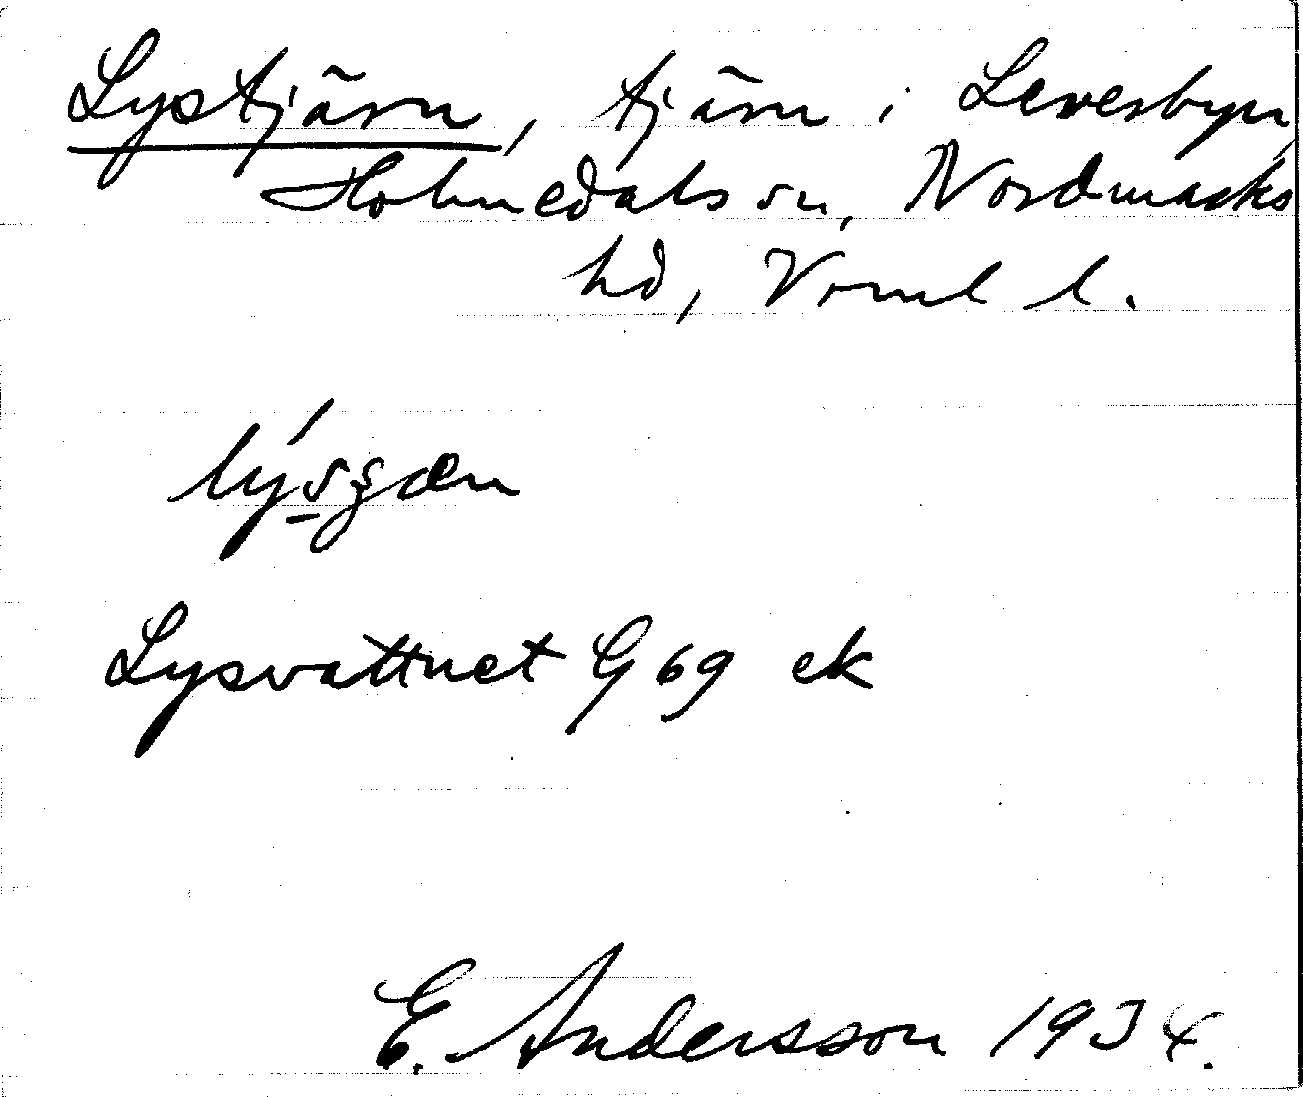 Lystjärn, tjärn i Leverbyn,
Holmedals sn, Nordmarks
hd, Vrml l.
Lysvattnet G 69 ek
E. Andersson 1934.